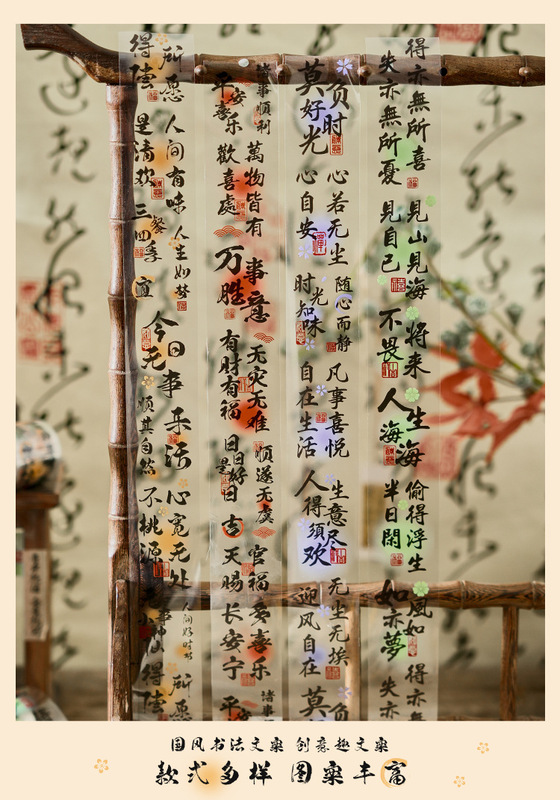 得亦無所喜
失亦無所憂
見山見海見自己
不畏将来
人生海海
偷得浮生
半日閑
得亦
失亦
莫负好时光
心若无尘
心自安
时光知味
随心而静
自在生活
凡事喜悦
人生得意須尽欢
无尘无埃
迎风自在
莫负
诸事順利
平安喜乐
萬物皆有
歡喜處
万事胜意
有财有福
无灾无难
日日是好日
順遂无虞
吉
天官賜福
多喜乐
长安宁
诸事
平安
所愿
人间有味
是清欢
三餐四季
人生如梦
宜
今日无事
顺其自然
乐活
心宽无处
不桃源
人间好时节
所愿
国风书法文案 创意趣文案
款式多样 图案丰富